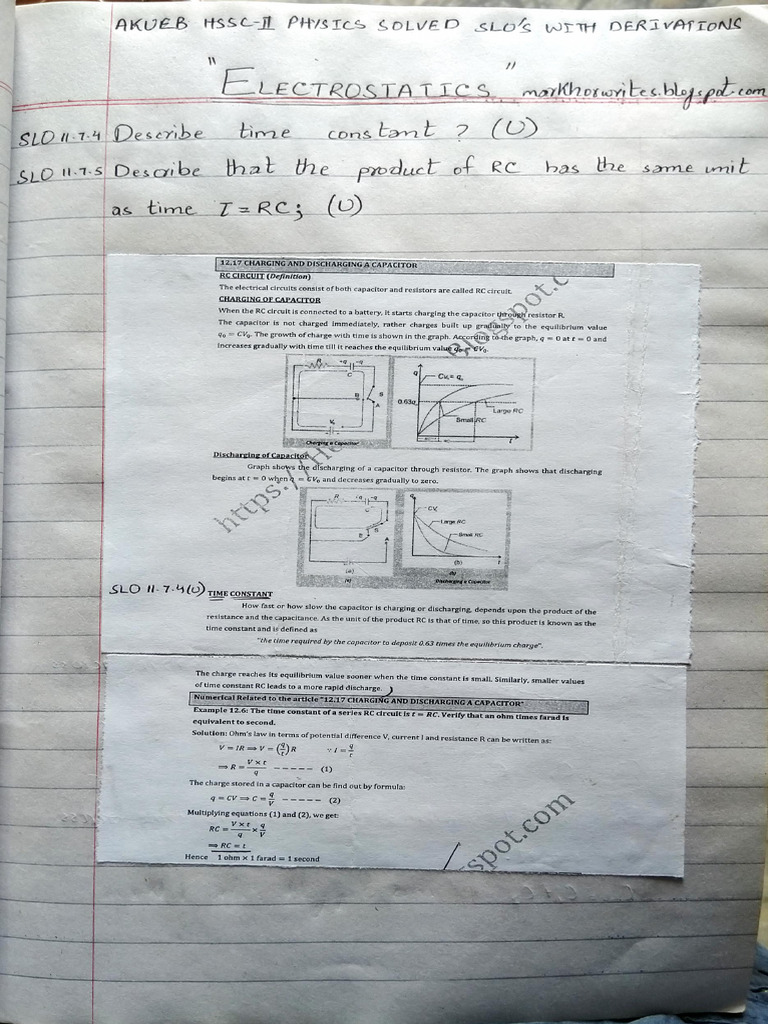 AKUEB HSSC-II PHYSICS SOLVED SLO'S WITH DERIVATIONS
"ELECTROSTATICS" markhorwrites.blogspot.com
SLO 11.7.4 Describe time constant ? (U)
SLO 11.7.5 Describe that the product of RC has the same unit
as time T = RC; (U)
12.17 CHARGING AND DISCHARGING A CAPACITOR
RC CIRCUIT (Definition)
The electrical circuits consist of both capacitor and resistors are called RC circuit.
CHARGING OF CAPACITOR
When the RC circuit is connected to a battery, it starts charging the capacitor through resistor R.
The capacitor is not charged immediately, rather charges built up gradually to the equilibrium value
q₀ = CV₀. The growth of charge with time is shown in the graph. According to the graph, q = 0 at t = 0 and
increases gradually with time till it reaches the equilibrium value q₀ = CV₀.
R +q -q
C
B S
A
V₀
Charging a Capacitor
q
CV₀ = q₀
0.63q
Large RC
Small RC
t
Discharging of Capacitor
Graph shows the discharging of a capacitor through resistor. The graph shows that discharging
begins at t = 0 when q = CV₀ and decreases gradually to zero.
R +q -q
C
S
B
A
(a)
(a)
q
CV₀
Large RC
Small RC
t
(b)
(b)
Discharging a Capacitor
SLO 11.7.4(U) TIME CONSTANT
How fast or how slow the capacitor is charging or discharging, depends upon the product of the
resistance and the capacitance. As the unit of the product RC is that of time, so this product is known as the
time constant and is defined as
"the time required by the capacitor to deposit 0.63 times the equilibrium charge".
The charge reaches its equilibrium value sooner when the time constant is small. Similarly, smaller values
of time constant RC leads to a more rapid discharge.
Numerical Related to the article "12.17 CHARGING AND DISCHARGING A CAPACITOR"
Example 12.6: The time constant of a series RC circuit is t = RC. Verify that an ohm times farad is
equivalent to second.
Solution: Ohm's law in terms of potential difference V, current I and resistance R can be written as:
V = IR ⟹ V = (q/t) R ∵ I = q/t
⟹ R = V × t / q - - - - - (1)
The charge stored in a capacitor can be find out by formula:
q = CV ⟹ C = q/V - - - - - (2)
Multiplying equations (1) and (2), we get:
RC = V × t / q × q/V
⟹ RC = t
Hence 1 ohm × 1 farad = 1 second